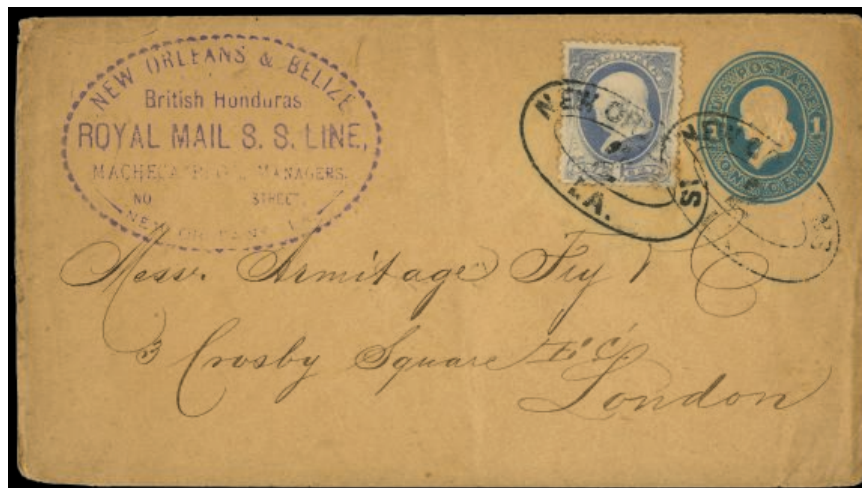 NEW ORLEANS & BELIZE
British Honduras
ROYAL MAIL S. S. LINE,
MACHECA BROS. MANAGERS.
NO STREET,
NEW ORLEANS, LA.
U.S. POSTAGE
1
ONE CENT
NEW OR
LA.
NEW
NS
Messr. Armitage Fry
3 Crosby Square E.C.
London